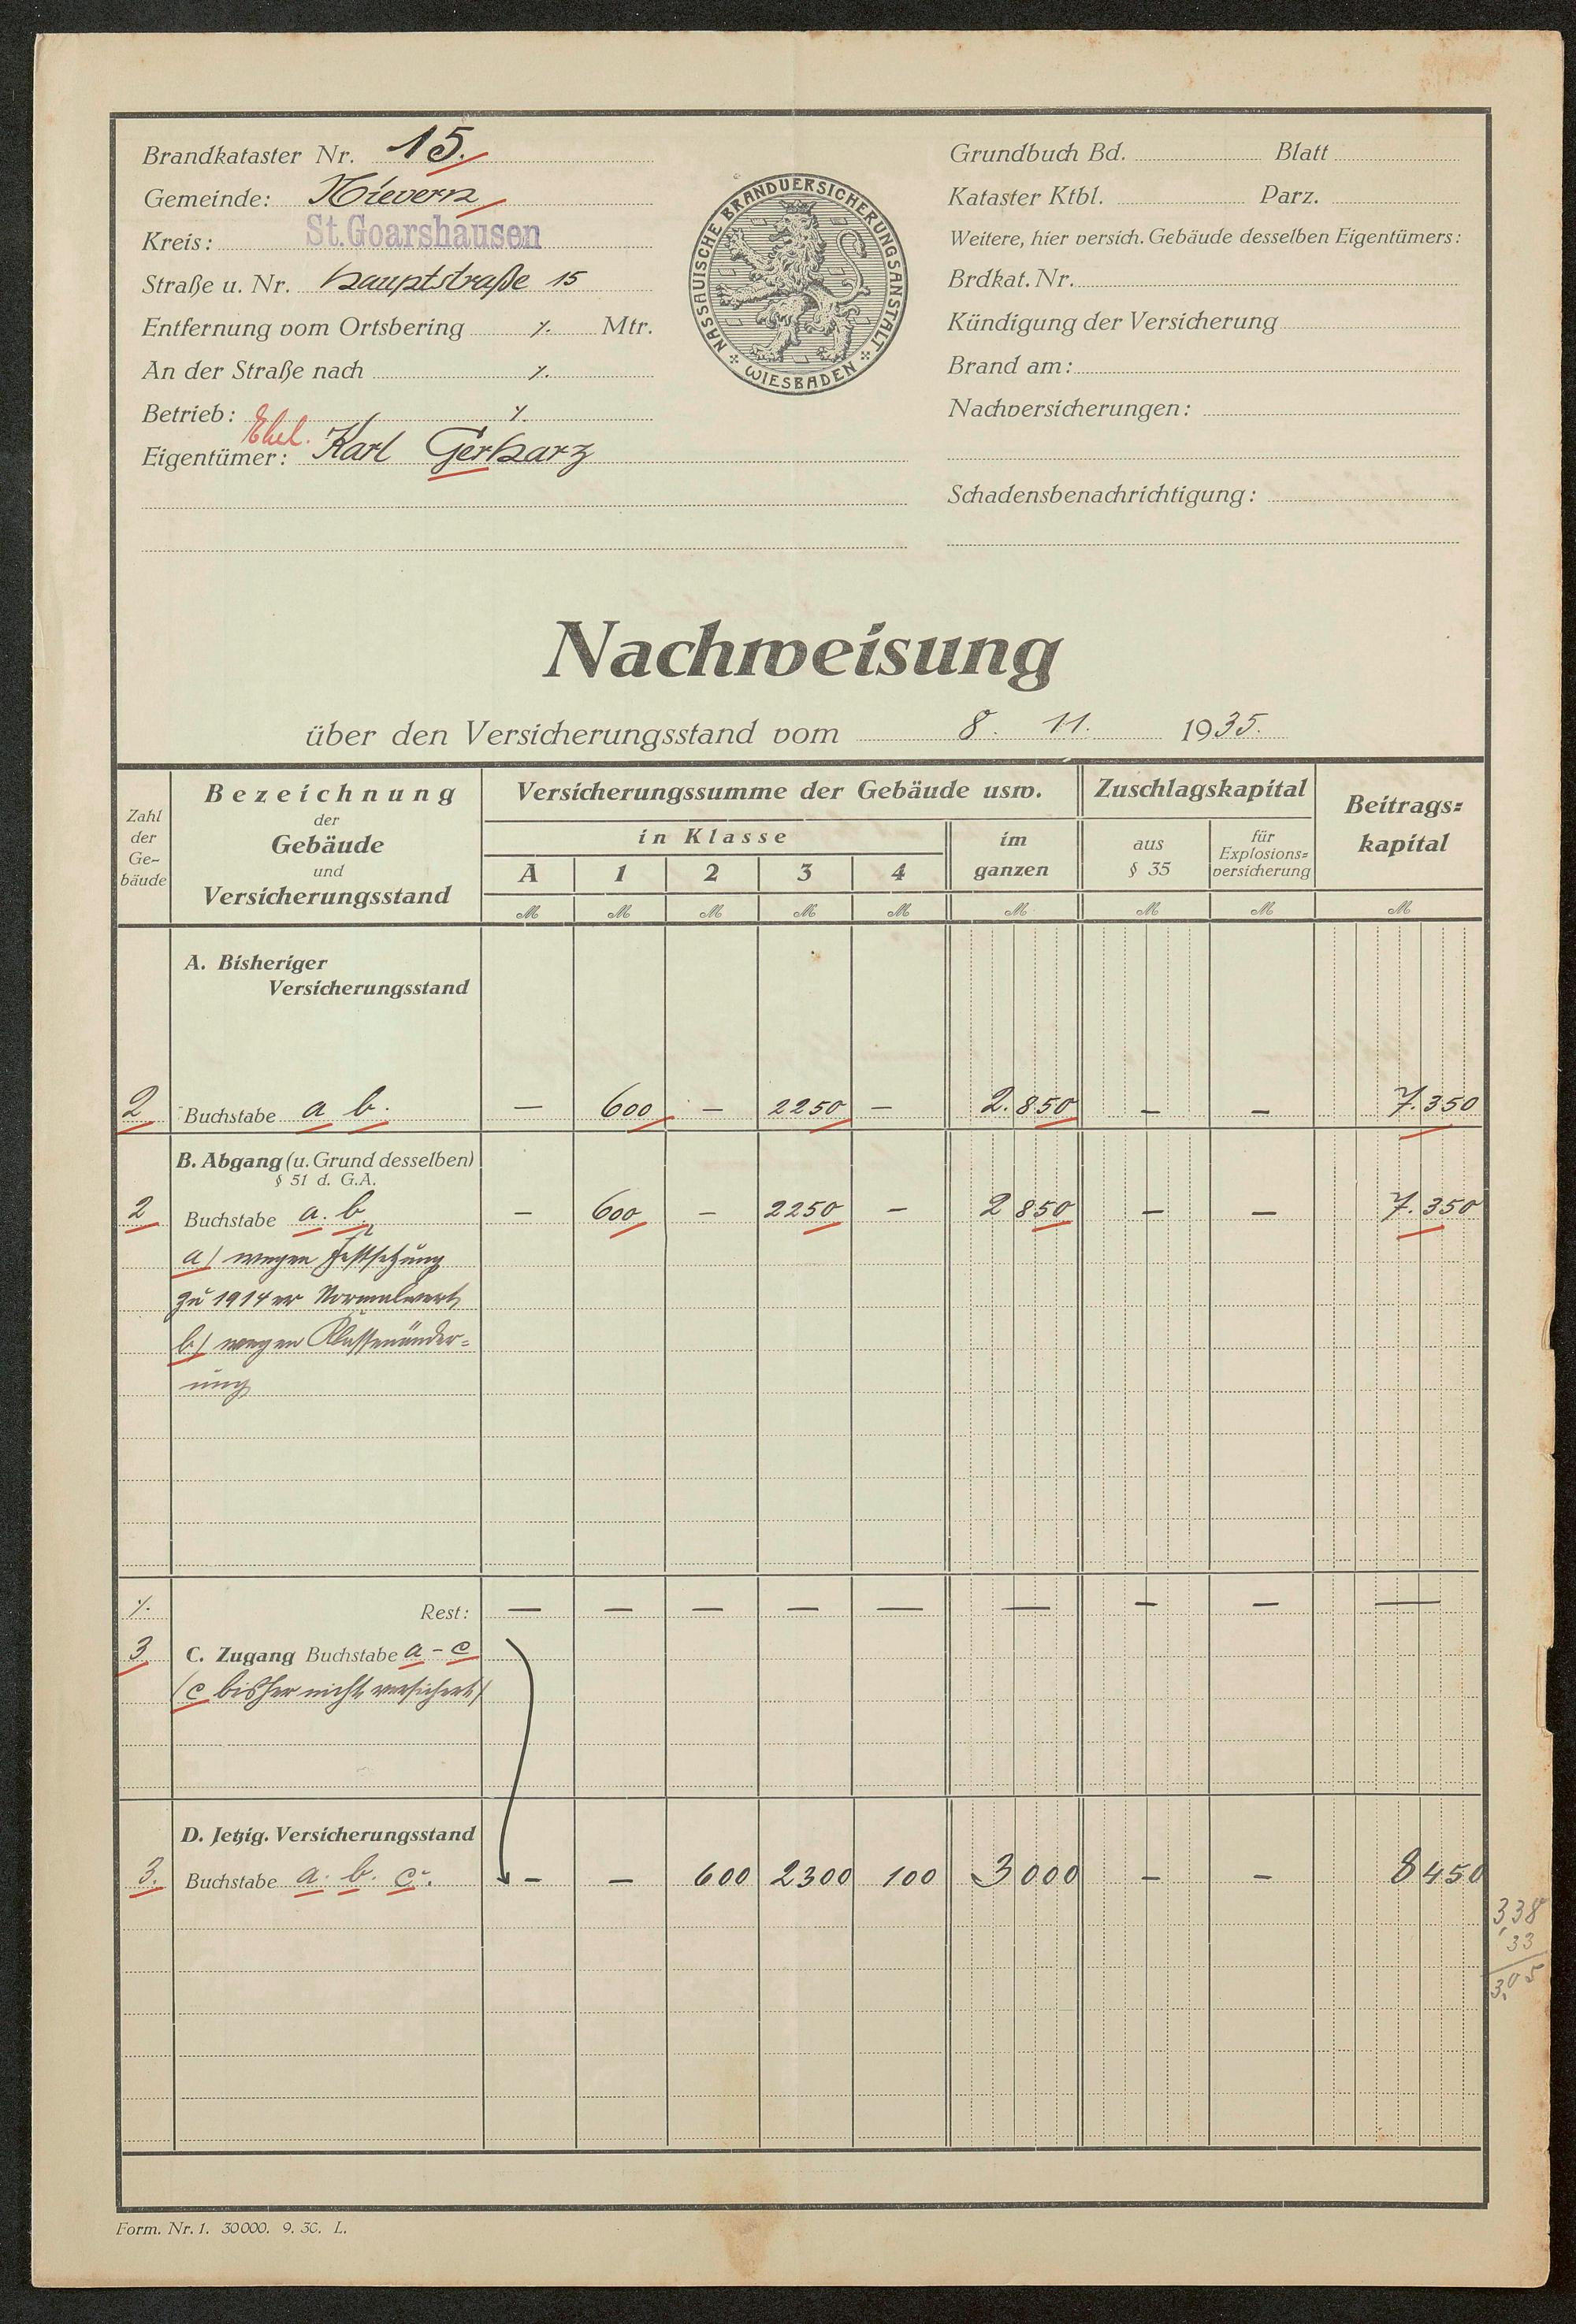 Brandkataster Nr. 15.
Gemeinde: Nievern
Kreis: St. Goarshausen
Straße u. Nr. Hauptstraße 15
Entfernung vom Ortsbering ⁒ Mtr.
An der Straße nach ⁒
Betrieb: ⁒
Ehel.
Eigentümer: Karl Gerharz
NASSAUISCHE BRANDVERSICHERUNGSANSTALT
WIESBADEN
Grundbuch Bd. Blatt
Kataster Ktbl. Parz.
Weitere, hier versich. Gebäude desselben Eigentümers:
Brdkat. Nr.
Kündigung der Versicherung
Brand am:
Nachversicherungen:
Schadensbenachrichtigung:
Nachweisung
über den Versicherungsstand vom 8. 11. 1935.
Zahl der Ge-bäude
Bezeichnung der Gebäude und Versicherungsstand
Versicherungssumme der Gebäude usw.
in Klasse
A 1 2 3 4
im ganzen
Zuschlagskapital
aus § 35
für Explosions-versicherung
Beitrags-kapital
M M M M M M M M M
A. Bisheriger
Versicherungsstand
2 Buchstabe a b. — 600 — 2250 — 2.850 — — 7.350
B. Abgang (u. Grund desselben)
§ 51 d. G.A.
2 Buchstabe a. b. — 600 — 2250 — 2 850 — — 7.350
a/ wegen Festsetzung
zu 1914er Normalwert,
b/ wegen Klassenänder-
ung
⁒ Rest: — — — — — — — — —
3 C. Zugang Buchstabe a - c
(c bisher nicht versichert)
D. Jetzig. Versicherungsstand
3. Buchstabe a. b. c. — — 600 2300 100 3000 — — 8450
3,38
33
3,05
Form. Nr. 1. 30000. 9. 30. L.